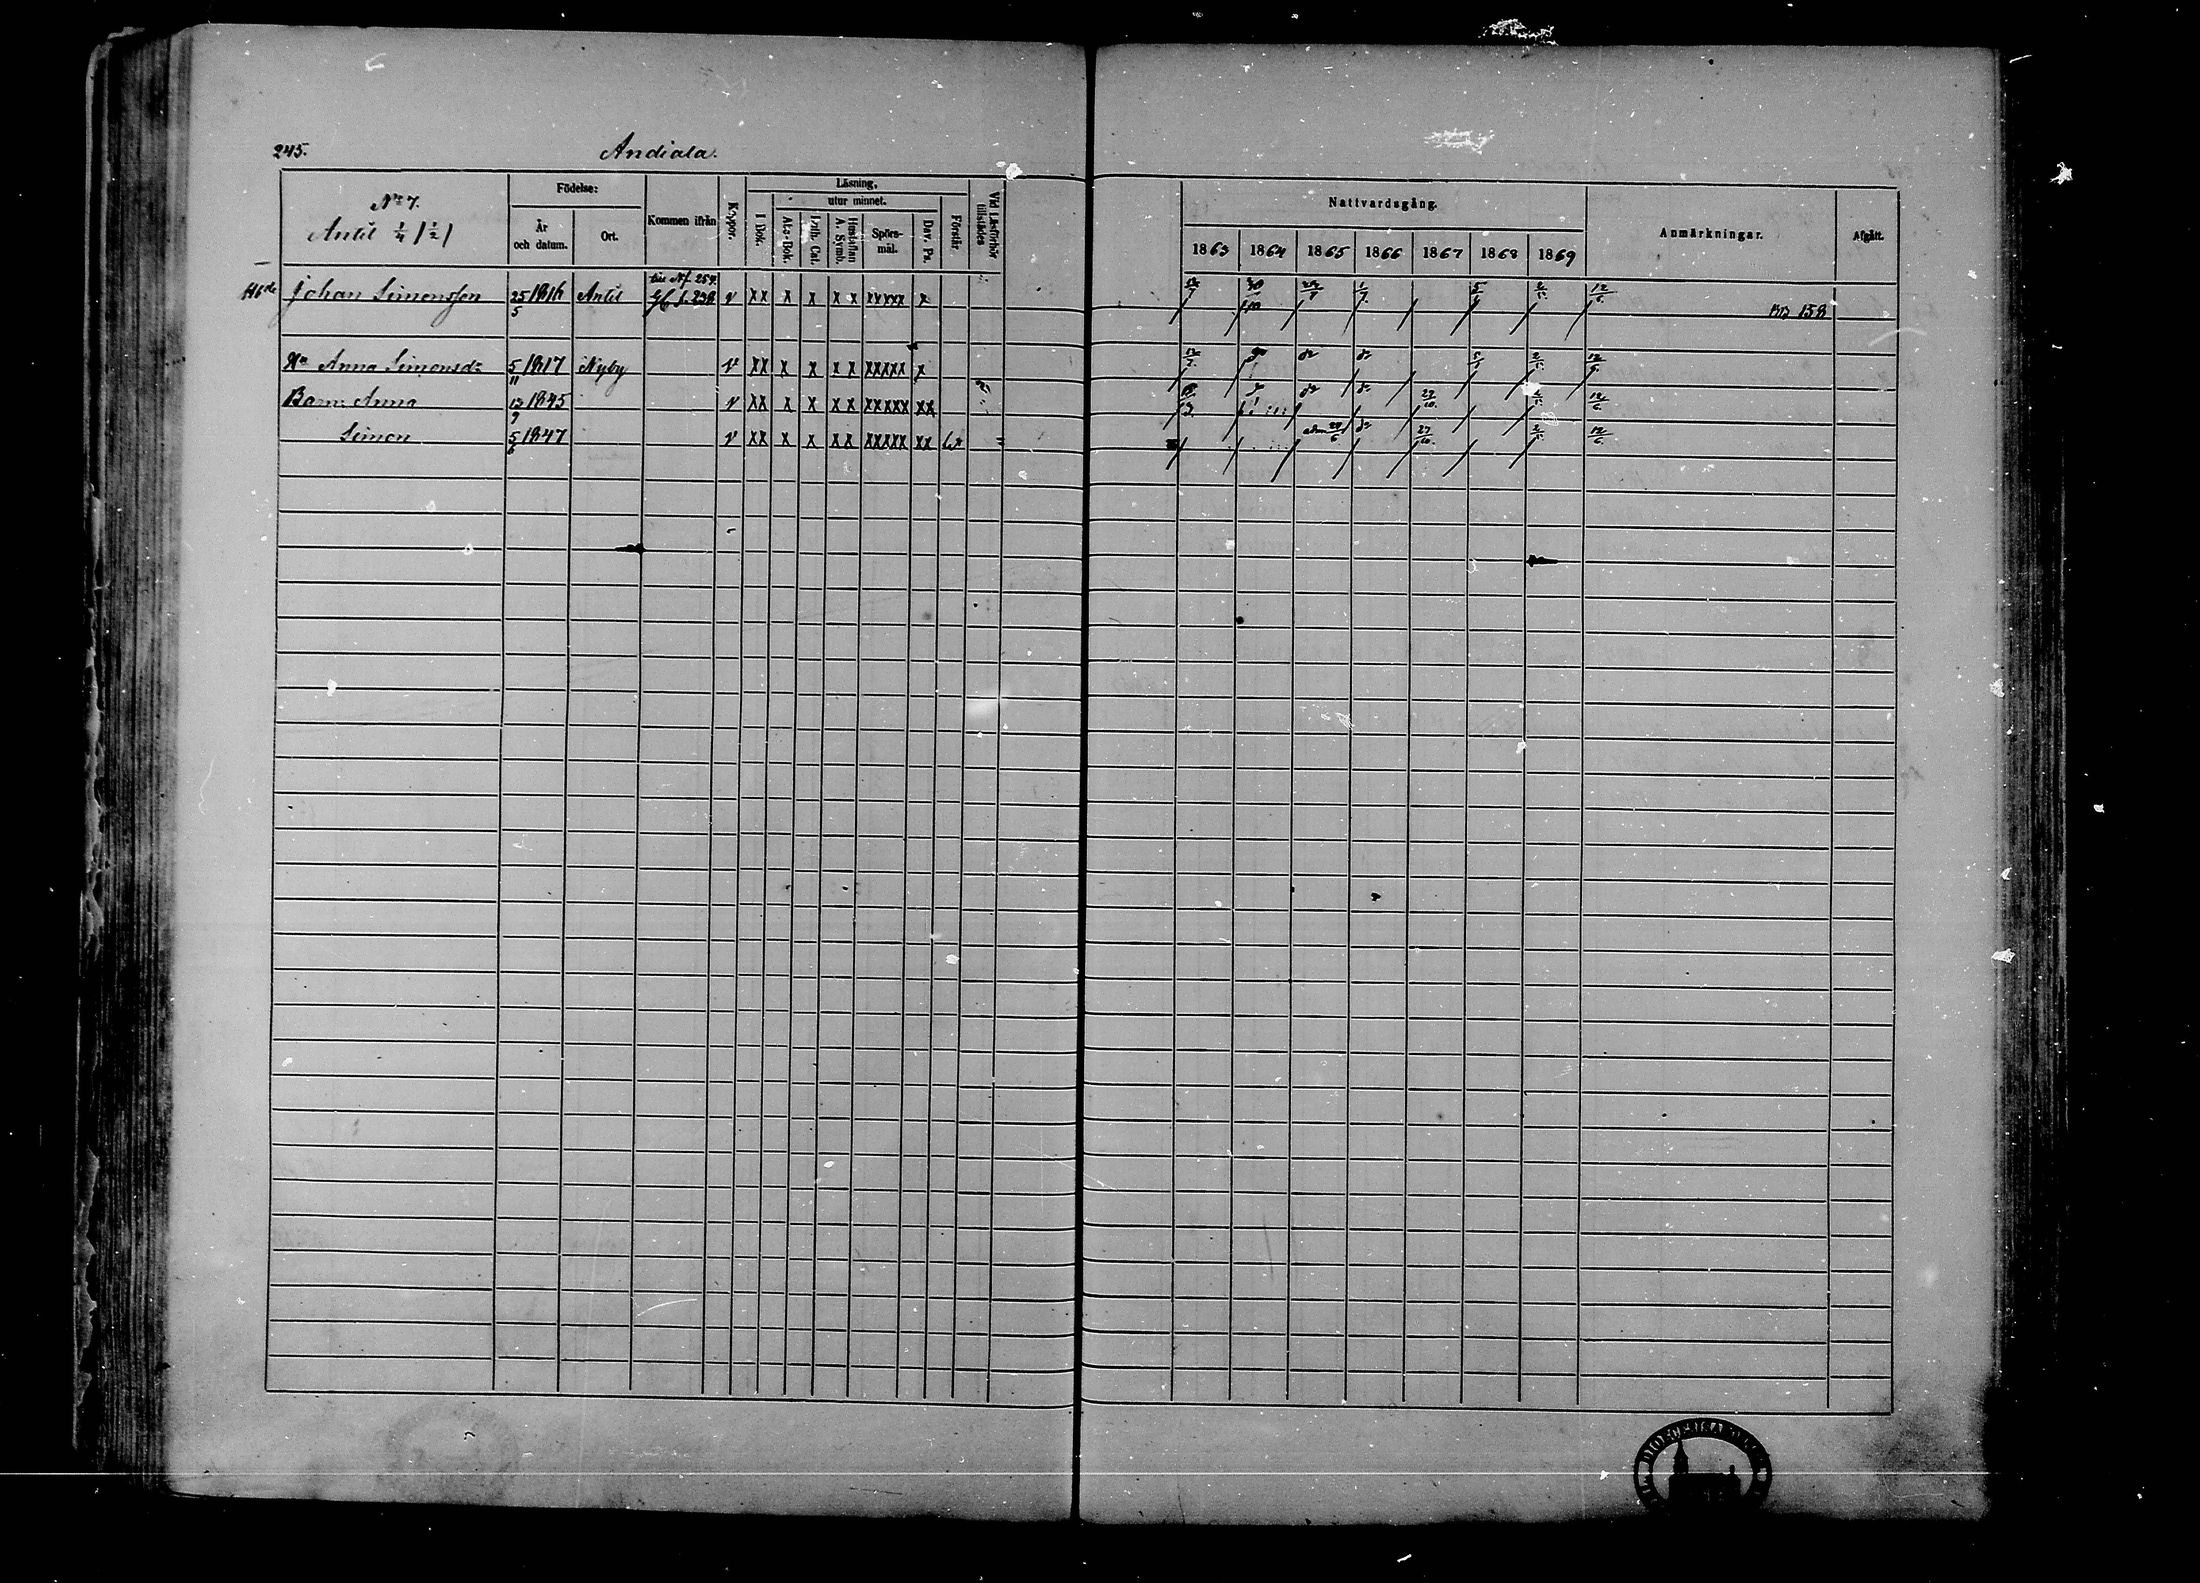 245. Andiala.
No 7.
Antil 1/4 /1/2/
Födelse:
År och datum.
Ort.
Kommen ifrån
Koppor.
Läsning,
I Bok.
utur minnet.
Abc-Bok.
Luth. Cat.
Hustaflan A. Symb.
Spörsmål.
Dav. Ps.
Förstår
Vid Läsförhör tillstädes
Nattvardsgång.
1863 1864 1865 1866 1867 1868 1869
Anmärkningar.
Afgått.
Johan Simonsson 25/5 1816 Antil v xx x x x x xxxxx x 1/7 158
Hu Anna Simonsdr 5/11 1817 Nyby v xx x x x x xxxxx x do do
Barn: Anna 13/9 1845 v xx x x x x xxxxx xx do do 27/10 12/6
Simon 5/6 1847 v xx x x x x xxxxx xx do 27/10 12/6